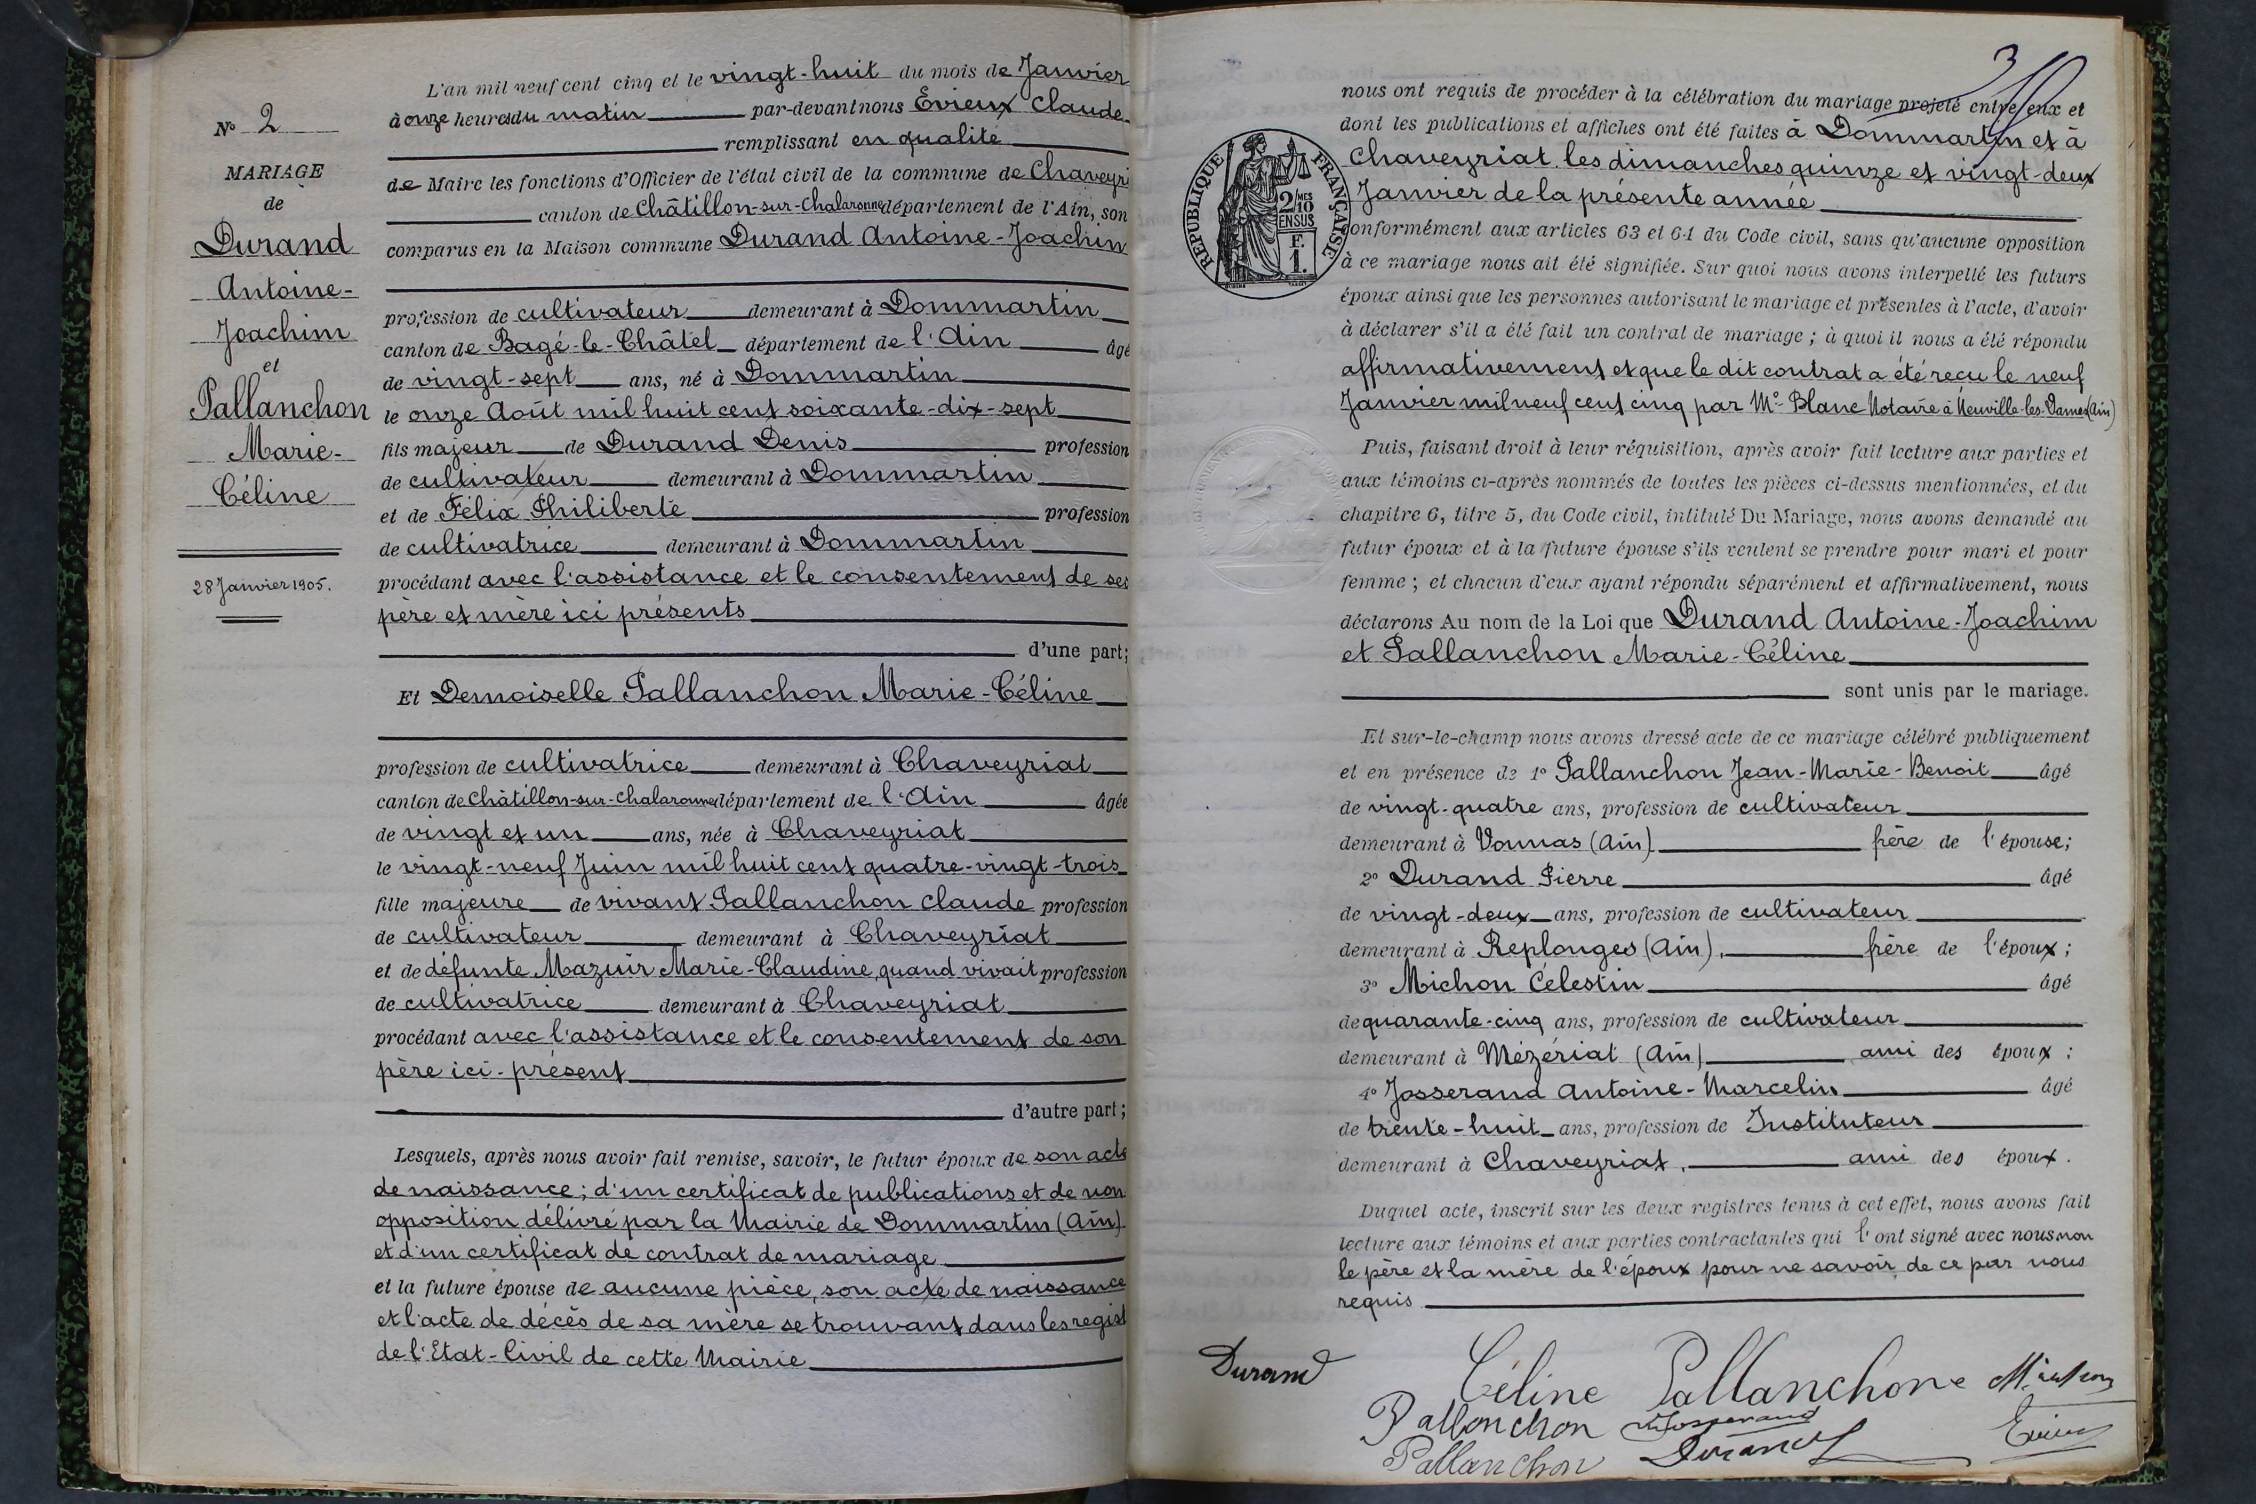 N° 2
MARIAGE
de
Durand
Antoine-
Joachim
et
Pallanchon
Marie-
Céline
28 Janvier 1905.
L'an mil neuf cent cinq et le vingt-huit du mois de Janvier
à onze heures du matin par-devant nous Évieux Claude
remplissant en qualité
de Maire les fonctions d'Officier de l'état civil de la commune de Chaveyri
canton de Châtillon-sur-Chalaronne département de l'Ain, son
comparus en la Maison commune Durand Antoine-Joachim
profession de cultivateur demeurant à Dommartin
canton de Bagé-le-Châtel département de l'Ain âgé
de vingt-sept ans, né à Dommartin
le onze Août mil huit cent soixante-dix-sept
fils majeur de Durand Denis profession
de cultivateur demeurant à Dommartin
et de Félix Philiberte profession
de cultivatrice demeurant à Dommartin
procédant avec l'assistance et le consentement de ses
père et mère ici présents
d'une part;
Et Demoiselle Pallanchon Marie-Céline
profession de cultivatrice demeurant à Chaveyriat
canton de Châtillon-sur-Chalaronne département de l'Ain âgée
de vingt et un ans, née à Chaveyriat
le vingt-neuf Juin mil huit cent quatre-vingt-trois
fille majeure de vivant Pallanchon Claude profession
de cultivateur demeurant à Chaveyriat
et de défunte Mazuir Marie-Claudine, quand vivait profession
de cultivatrice demeurant à Chaveyriat
procédant avec l'assistance et le consentement de son
père ici-présent
d'autre part;
Lesquels, après nous avoir fait remise, savoir, le futur époux de son acte
de naissance; d'un certificat de publications et de non
opposition délivré par la Mairie de Dommartin (Ain)
et d'un certificat de contrat de mariage
et la future épouse de aucune pièce, son acte de naissance
et l'acte de décès de sa mère se trouvant dans les regist
de l'Etat-Civil de cette Mairie
3
nous ont requis de procéder à la célébration du mariage projeté entre eux et
dont les publications et affiches ont été faites à Dommartin et à
Chaveyriat les dimanches quinze et vingt-deux
Janvier de la présente année
conformément aux articles 63 et 64 du Code civil, sans qu'aucune opposition
à ce mariage nous ait été signifiée. Sur quoi nous avons interpellé les futurs
époux ainsi que les personnes autorisant le mariage et présentes à l'acte, d'avoir
à déclarer s'il a été fait un contrat de mariage; à quoi il nous a été répondu
affirmativement et que le dit contrat a été reçu le neuf
Janvier mil neuf cent cinq par Me Blanc Notaire à Neuville-les-Dames (Ain)
RÉPUBLIQUE FRANÇAISE
2/10 MES
EN SUS
F.
1.
Puis, faisant droit à leur réquisition, après avoir fait lecture aux parties et
aux témoins ci-après nommés de toutes les pièces ci-dessus mentionnées, et du
chapitre 6, titre 5, du Code civil, intitulé Du Mariage, nous avons demandé au
futur époux et à la future épouse s'ils veulent se prendre pour mari et pour
femme; et chacun d'eux ayant répondu séparément et affirmativement, nous
déclarons Au nom de la Loi que Durand Antoine-Joachim
et Pallanchon Marie-Céline
sont unis par le mariage.
Et sur-le-champ nous avons dressé acte de ce mariage célébré publiquement
et en présence de 1° Pallanchon Jean-Marie-Benoit âgé
de vingt-quatre ans, profession de cultivateur
demeurant à Vonnas (Ain) frère de l'épouse;
2° Durand Pierre âgé
de vingt-deux ans, profession de cultivateur
demeurant à Replonges (Ain), frère de l'époux;
3° Michon Célestin âgé
de quarante-cinq ans, profession de cultivateur
demeurant à Mézériat (Ain) ami des époux;
4° Josserand Antoine-Marcelin âgé
de trente-huit ans, profession de Instituteur
demeurant à Chaveyriat, ami des époux.
Duquel acte, inscrit sur les deux registres tenus à cet effet, nous avons fait
lecture aux témoins et aux parties contractantes qui l'ont signé avec nous non
le père et la mère de l'époux pour ne savoir, de ce par nous
requis
Durand
Céline Pallanchon
Pallanchon Josserand
Pallanchon Durand
Évieux